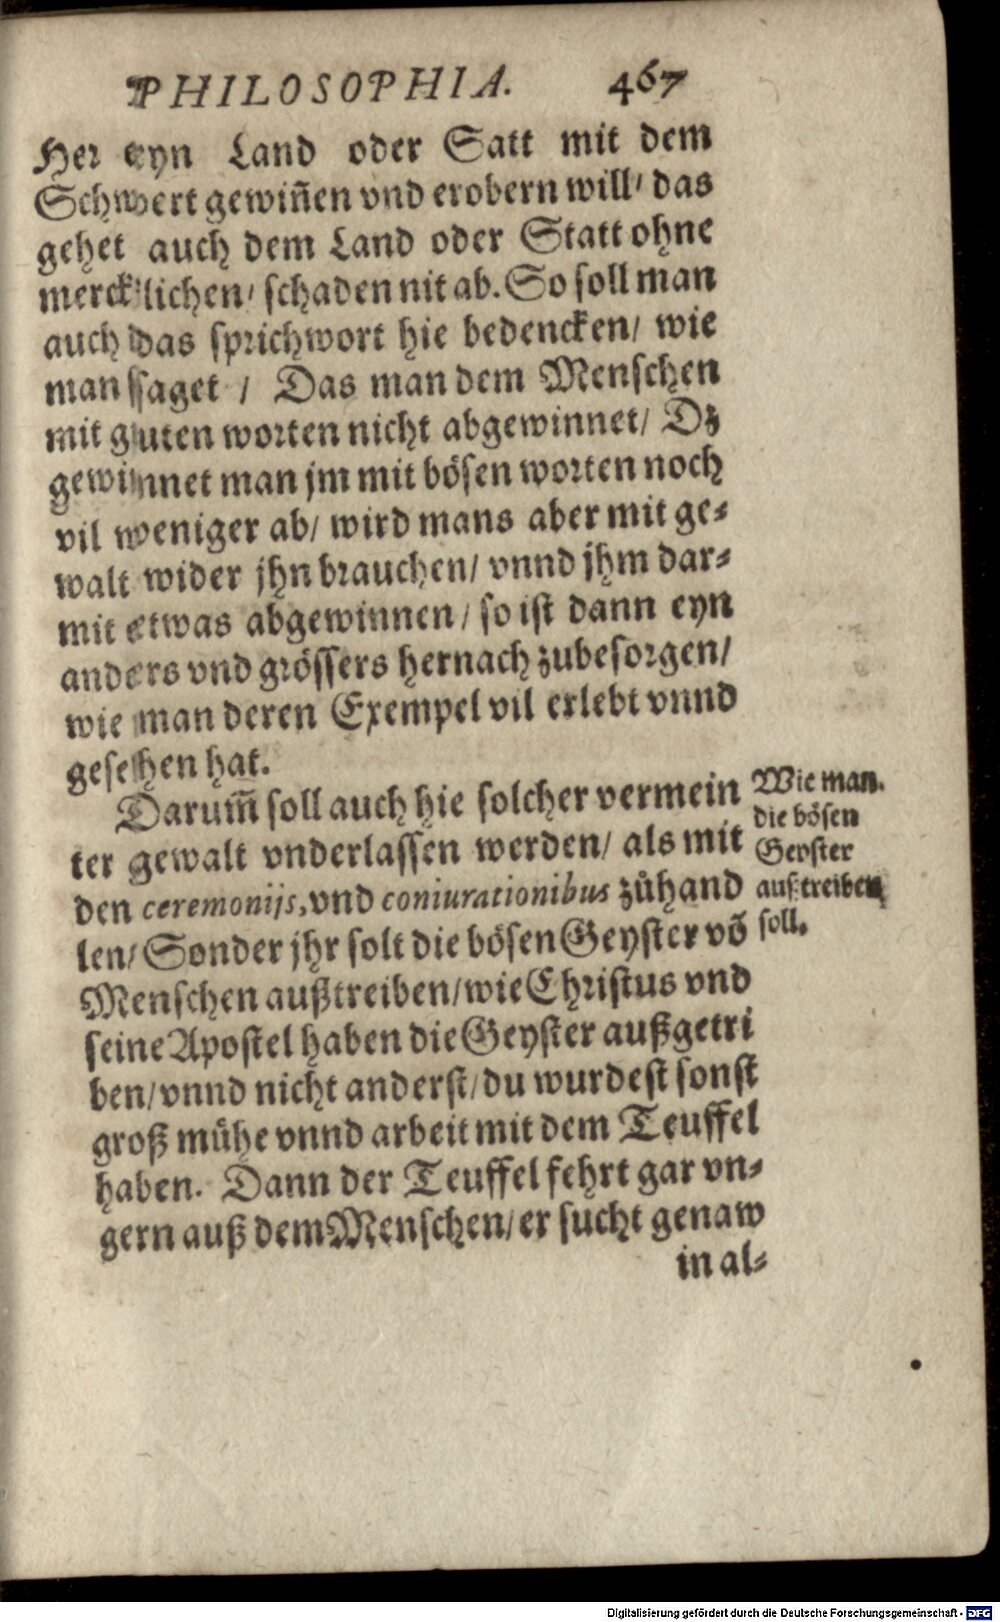 PHILOSOPHIA. 467
Her eyn Land oder Satt mit dem
Schwert gewiñen vnd erobern will/ das
gehet auch dem Land oder Statt ohne
mercklichen/ schaden nit ab. So soll man
auch das sprichwort hie bedencken/ wie
man saget / Das man dem Menschen
mit guten worten nicht abgewinnet/ Dz
gewinnet man jm mit bösen worten noch
vil weniger ab/ wird mans aber mit ge-
walt wider jhn brauchen/ vnnd jhm dar-
mit etwas abgewinnen/ so ist dann eyn
anders vnd grössers hernach zubesorgen/
wie man deren Exempel vil erlebt vnnd
gesehen hat.
Darum̃ soll auch hie solcher vermein
ter gewalt vnderlassen werden/ als mit
den ceremonijs, vnd coniurationibus zůhand
len/ Sonder jhr solt die bösen Geyster võ
Menschen außtreiben/ wie Christus vnd
seine Apostel haben die Geyster außgetri
ben/ vnnd nicht anderst/ du wurdest sonst
groß mühe vnnd arbeit mit dem Teuffel
haben. Dann der Teuffel fehrt gar vn-
gern auß dem Menschen/ er sucht genaw
in al-
Wie man.
die bösen
Geyster
austreiben
soll.
Digitalisierung gefördert durch die Deutsche Forschungsgemeinschaft - DFG